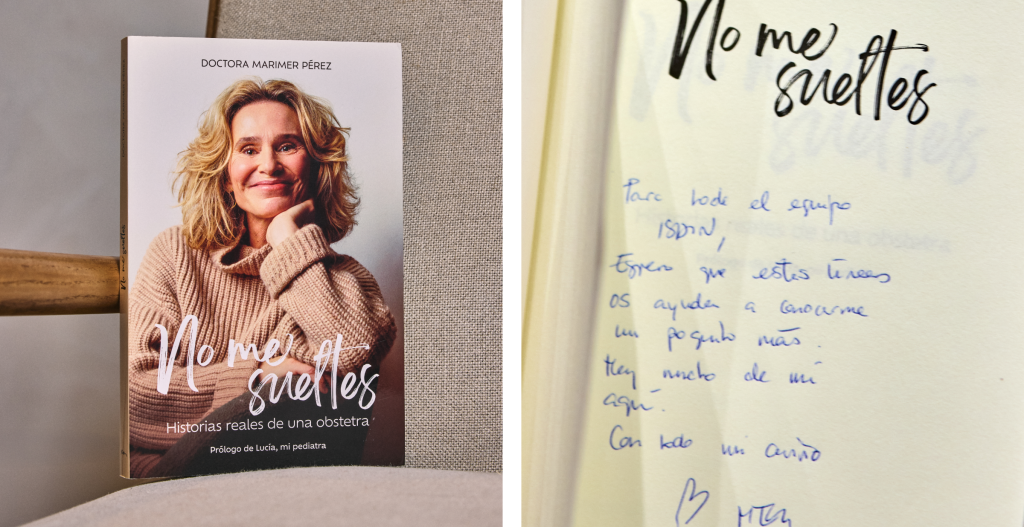 DOCTORA MARIMER PÉREZ
No me
sueltes
Historias reales de una obstetra
Prólogo de Lucía, mi pediatra
No me sueltes
No me
sueltes
Para todo el equipo
ISDIN,
Espero que estas líneas
os ayuden a conocerme
un poquito más.
Hay mucho de mí
aquí.
Con todo mi cariño